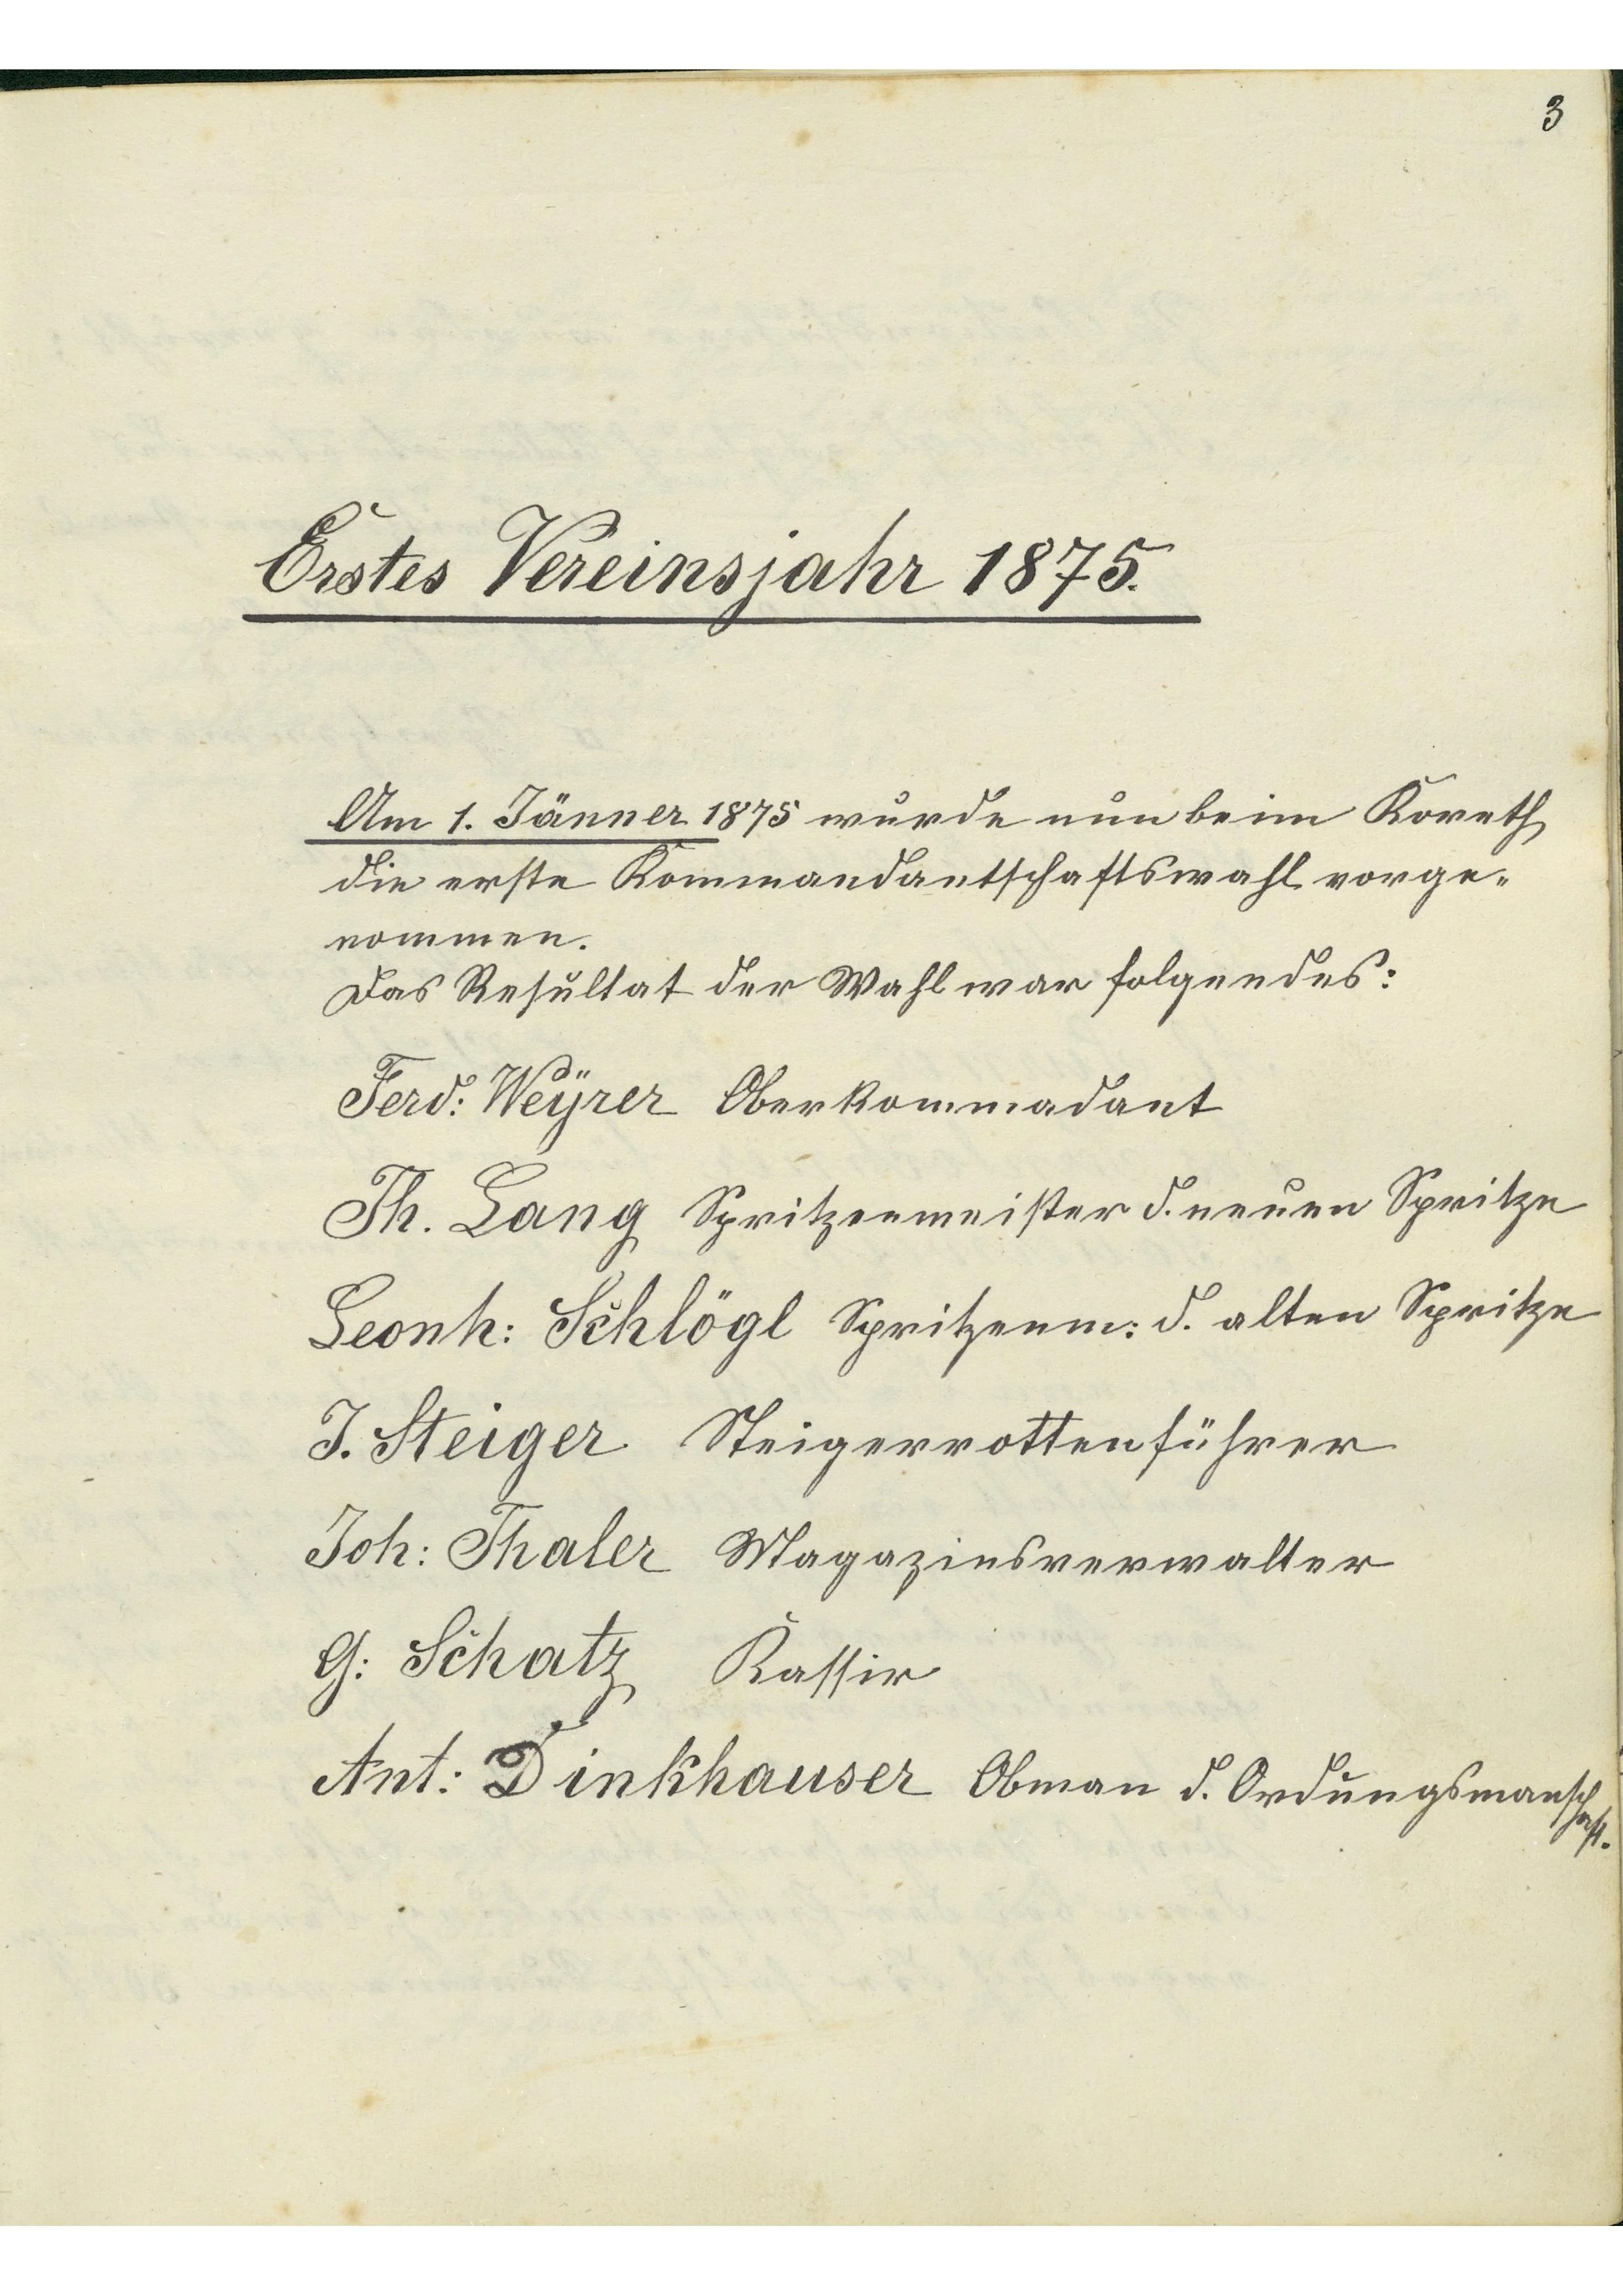 3
Erstes Vereinsjahr 1875.
Am 1. Jänner 1875 wurde nun beim Koreth
die erste Kommandantschaftswahl vorge-
nommen.
Das Resultat der Wahl war folgendes:
Ferd: Weÿrer Oberkommadant
Th. Lang Spritzenmeister d. neuen Spritze
Leonh: Schlögl Spritzenm: d. alten Spritze
J. Steiger Steigerrottenführer
Joh: Thaler Magazinsverwalter
G: Schatz Kassir
Ant: Dinkhauser Obman d. Ordungsmanschaft.